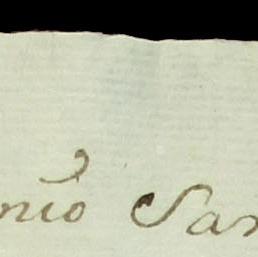 nio San